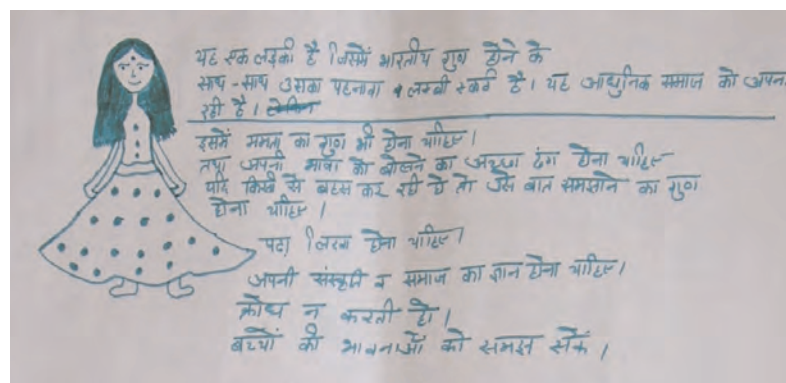 यह एक लड़की है जिसमें भारतीय गुण होने के
साथ-साथ उसका पहनावा व लम्बी स्कर्ट है। यह आधुनिक समाज को अपना
रही है। लेकिन
इसमें ममता का गुण भी होना चाहिए।
तथा अपनी भाषा को बोलने का अच्छा ढंग होना चाहिए
यदि किसी से बहस कर रही है तो उसे बात समझाने का गुण
होना चाहिए।
पढ़ा लिखा होना चाहिए।
अपनी संस्कृति व समाज का ज्ञान होना चाहिए।
क्रोध न करती हो।
बच्चों की भावनाओं को समझ सकें।